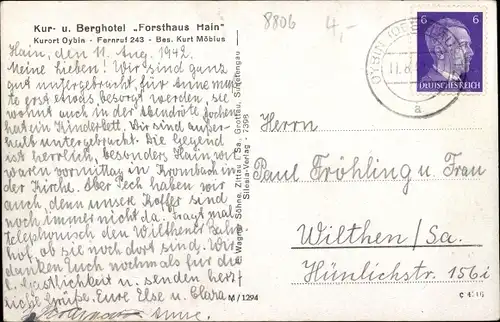 Kur- u. Berghotel „Forsthaus Hain"
Kurort Oybin - Fernruf 243 - Bes. Kurt Möbius
Hain, den 11. Aug. 1942.
Meine Lieben! Wir sind ganz
gut untergebracht, für Anne muß-
te erst etwas besorgt werden, sie
wohnt auch in der Abendröte
hat ein Kinderbett. Wir sind außer-
halb untergebracht. Die Gegend
ist herrlich, besonders Hain, wir
waren vormittag in Krombach in
der Kirche. Aber Pech haben wir
auch, denn unser Koffer sind
noch immer nicht da. Fragt mal
telephonisch den Wilthener Bahn-
hof, ob sie noch dort sind. Wir
danken Euch nochmals für die
Gastlichkeit u. senden herz-
liche Grüße. Eure Else u. Clara
Anne.
M/1294
Wagner Söhne, Zittau i. Sa., Grottau, Sudetengau
Silesia-Verlag - 7398
8806
4,-
OYBIN
11.8.
a
6 6
DEUTSCHES REICH
Herrn
Paul Fröhling u. Frau
Wilthen/Sa.
Hünlichstr. 156i